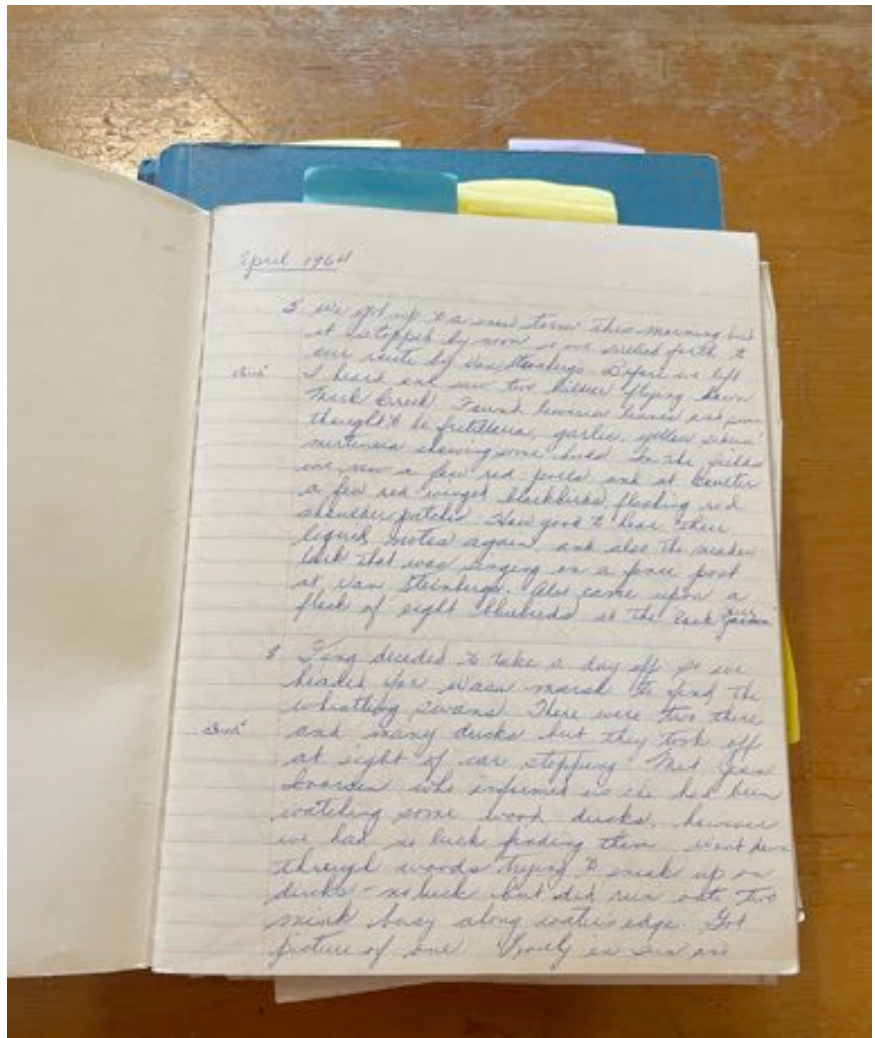 April 1964
5 We got up to a snow storm this morning but
it stopped by noon so we sallied forth to
our route by Van Steinburgs. Before we left
I heard and saw two killdeer flying down
Creek. Found leaves and some
thought to be fritillaria, garlic, yellow
mertensia showing some buds. In the fields
we saw a few red polls and at Coulter
a few red-winged blackbirds flashing red
shoulder patches. How good to hear their
liquid notes again, and also the meadow
lark that was singing on a fence post
at Van Steinburgs. Also came upon a
flock of eight bluebirds at the Rock
8 decided to take a day off so we
headed for marsh to find the
whistling swans. There were two there
and many ducks but they took off
at sight of car stopping. Met Jean
who informed us she had been
watching some wood ducks, however
we had no luck finding them. Went down
through woods trying to sneak up on
ducks - no luck but did run onto two
mink busy along water's edge. Got
picture of one. Lovely in sun and